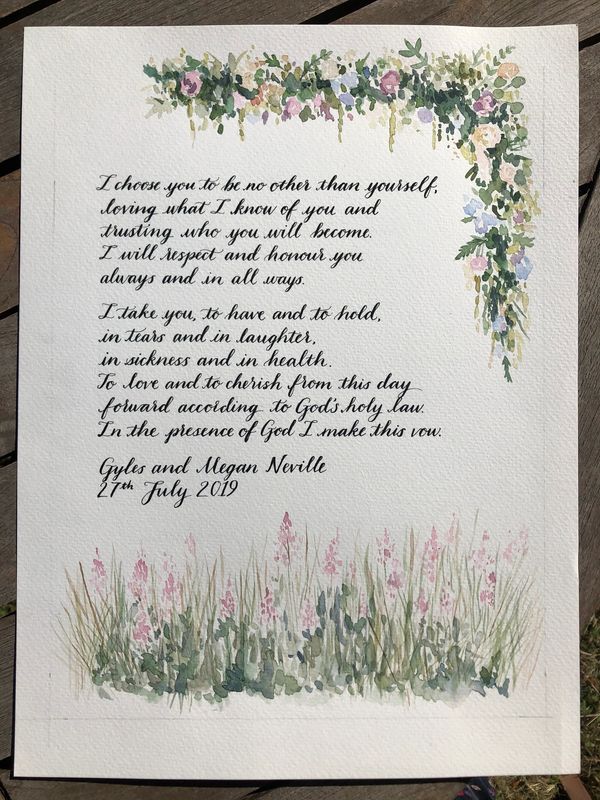 I choose you to be no other than yourself,
loving what I know of you and
trusting who you will become.
I will respect and honour you
always and in all ways.
I take you, to have and to hold,
in tears and in laughter,
in sickness and in health.
To love and to cherish from this day
forward according to God's holy law.
In the presence of God I make this vow.
Gyles and Megan Neville
27th July 2019